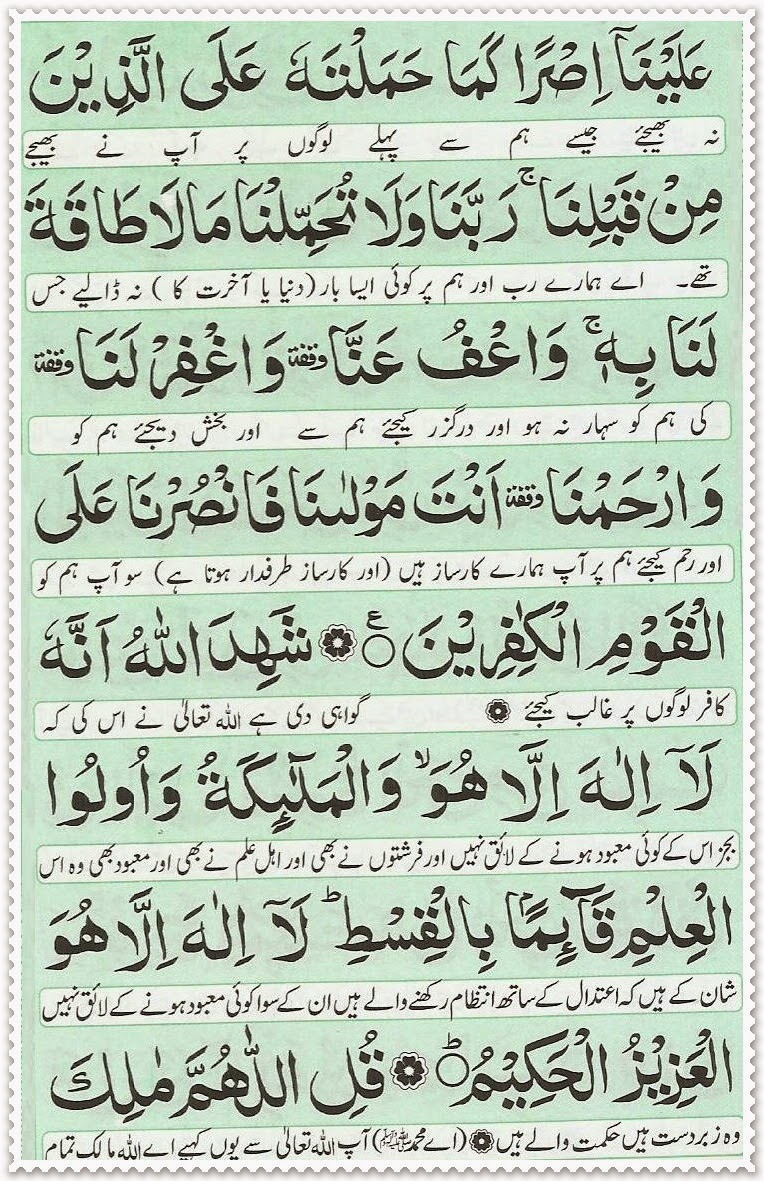 عَلَيْنَآ اِصْرًا كَمَا حَمَلْتَهٗ عَلَى الَّذِيْنَ
نہ بھیجئے جیسے ہم سے پہلے لوگوں پر آپ نے بھیجے
مِنْ قَبْلِنَا ۚ رَبَّنَا وَلَا تُحَمِّلْنَا مَالَا طَاقَةَ
تھے۔ اے ہمارے رب اور ہم پر کوئی ایسا بار (دنیا یا آخرت کا ) نہ ڈالیے جس
لَنَا بِهٖ ۚ وَاعْفُ عَنَّا وقفة وَاغْفِرْ لَنَا وقفة
کی ہم کو سہار نہ ہو اور درگزر کیجئے ہم سے اور بخش دیجئے ہم کو
وَارْحَمْنَا وقفة اَنْتَ مَوْلٰىنَا فَانْصُرْنَا عَلَى
اور رحم کیجئے ہم پر آپ ہمارے کارساز ہیں (اور کارساز طرفدار ہوتا ہے) سو آپ ہم کو
الْقَوْمِ الْكٰفِرِيْنَ ○ع شَهِدَ اللّٰهُ اَنَّهٗ
کافر لوگوں پر غالب کیجئے گواہی دی ہے اللہ تعالیٰ نے اس کی کہ
لَآ اِلٰهَ اِلَّا هُوَ ۙ وَالْمَلٰٓئِكَةُ وَاُولُوا
بجز اس کے کوئی معبود ہونے کے لائق نہیں اور فرشتوں نے بھی اور اہل علم نے بھی اور معبود بھی وہ اس
الْعِلْمِ قَآئِمًاۢ بِالْقِسْطِ ؕ لَآ اِلٰهَ اِلَّا هُوَ
شان کے ہیں کہ اعتدال کے ساتھ انتظام رکھنے والے ہیں ان کے سوا کوئی معبود ہونے کے لائق نہیں
الْعَزِيْزُ الْحَكِيْمُ ○ؕ قُلِ اللّٰهُمَّ مٰلِكَ
وہ زبردست ہیں حکمت والے ہیں (اے محمد ﷺ) آپ اللہ تعالیٰ سے یوں کہیے اے اللہ مالک تمام